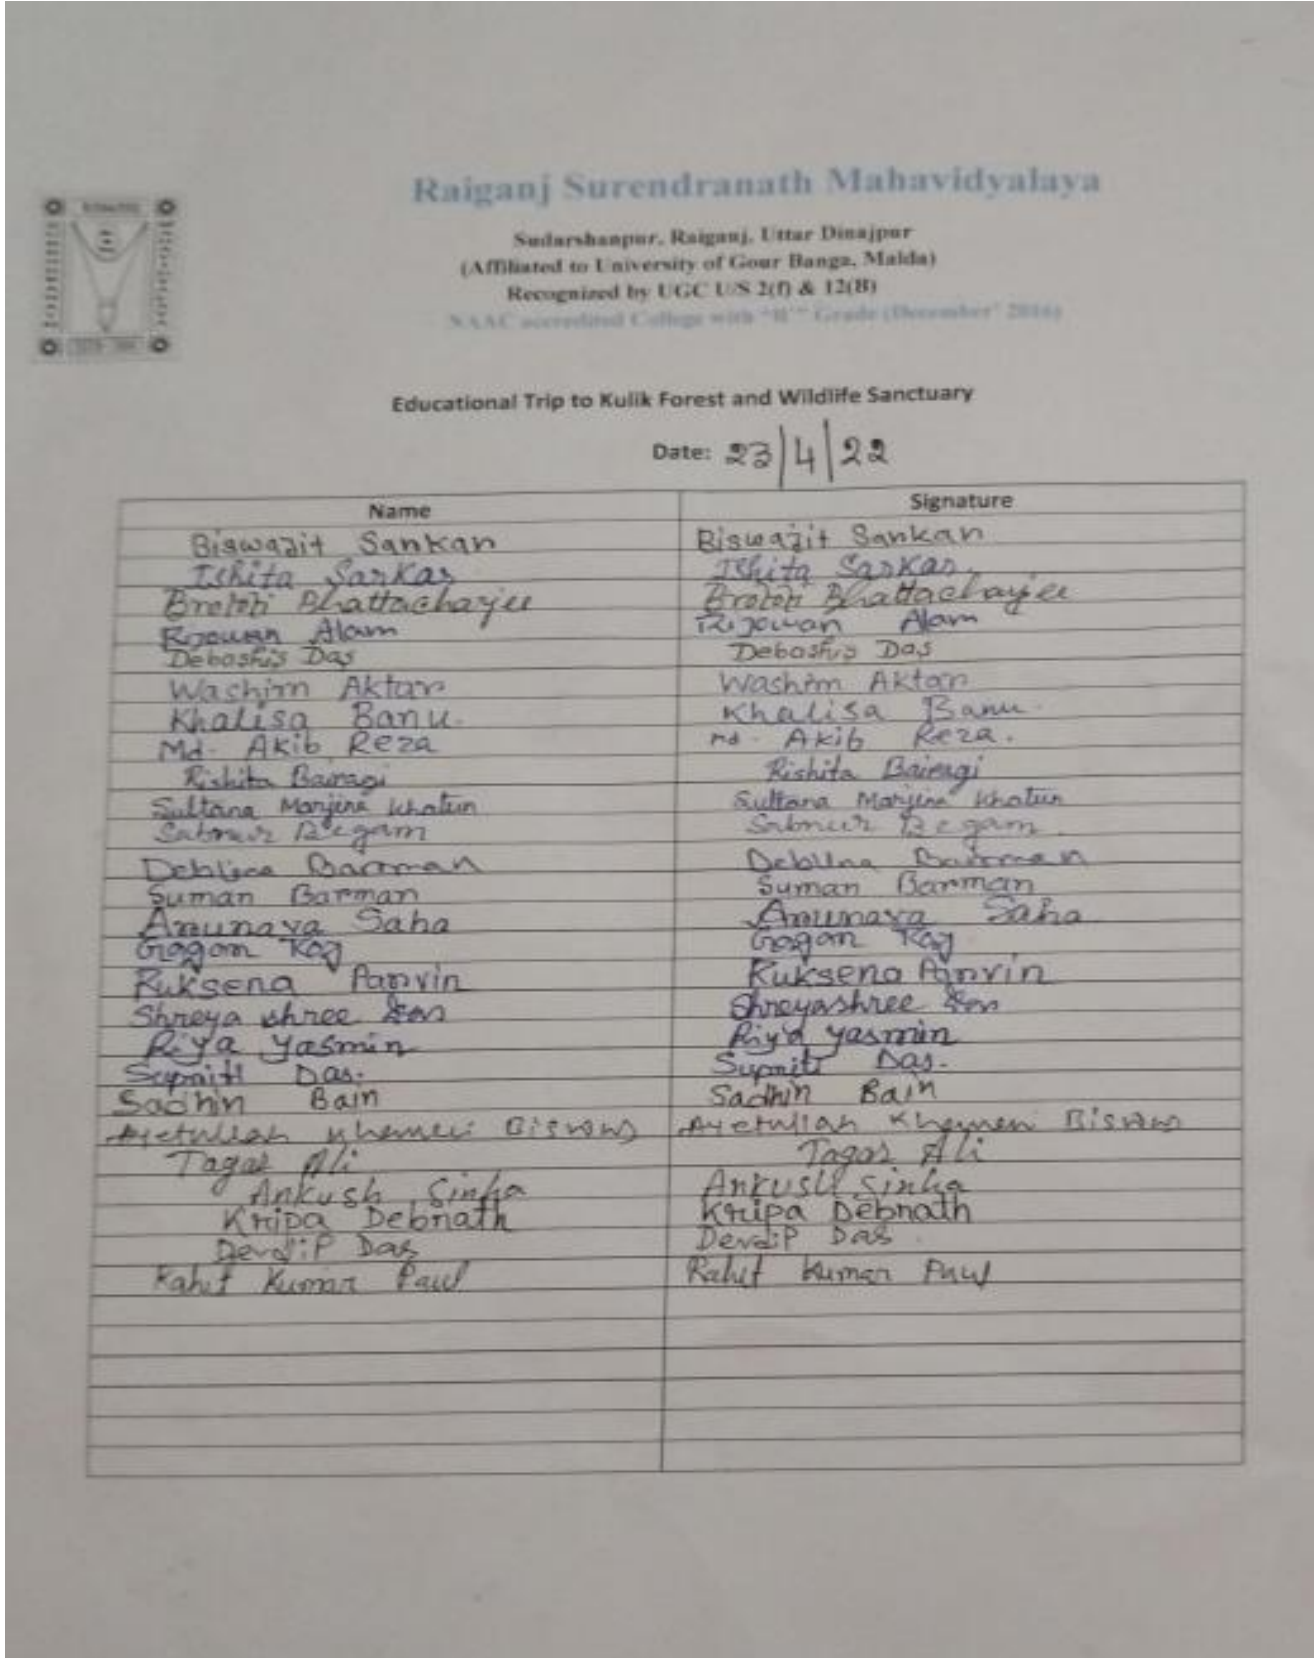 Raiganj Surendranath Mahavidyalaya
Sudarshanpur, Raiganj, Uttar Dinajpur
(Affiliated to University of Gour Banga, Malda)
Recognized by UGC U/S 2(f) & 12(B)
NAAC accredited College with "B+" Grade (December' 2016)
Educational Trip to Kulik Forest and Wildlife Sanctuary
Date: 23/4/22
Name Signature
Biswajit Sankan Biswajit Sankan
Ishita Sarkar Ishita Sarkar.
Brototi Bhattacharjee Brototi Bhattacharjee
Rijowan Alam Rijowan Alam
Debashis Das Debashis Das
Washim Aktar Washim Aktar
Khalisa Banu. Khalisa Banu.
Md. Akib Reza Md. Akib Reza.
Rishita Bairagi Rishita Bairagi
Sultana Marjina Khatun Sultana Marjina Khatun
Sabnur Begam Sabnur Begam
Deblina Barman Deblina Barman
Suman Barman Suman Barman
Arunava Saha Arunava Saha
Gagan Roy Gagan Roy
Ruksena Parvin Ruksena Parvin
Shreya shree Shreyashree
Riya Yasmin Riya Yasmin
Supriti Das. Supriti Das.
Sadhin Bain Sadhin Bain
Ayetullah Khameni Biswas Ayetullah Khameni Biswas
Tagar Ali Tagar Ali
Ankush Sinha Ankush Sinha
Kripa Debnath Kripa Debnath
Devdip Das Devdip Das
Rahit Kumar Paul Rahit Kumar Paul